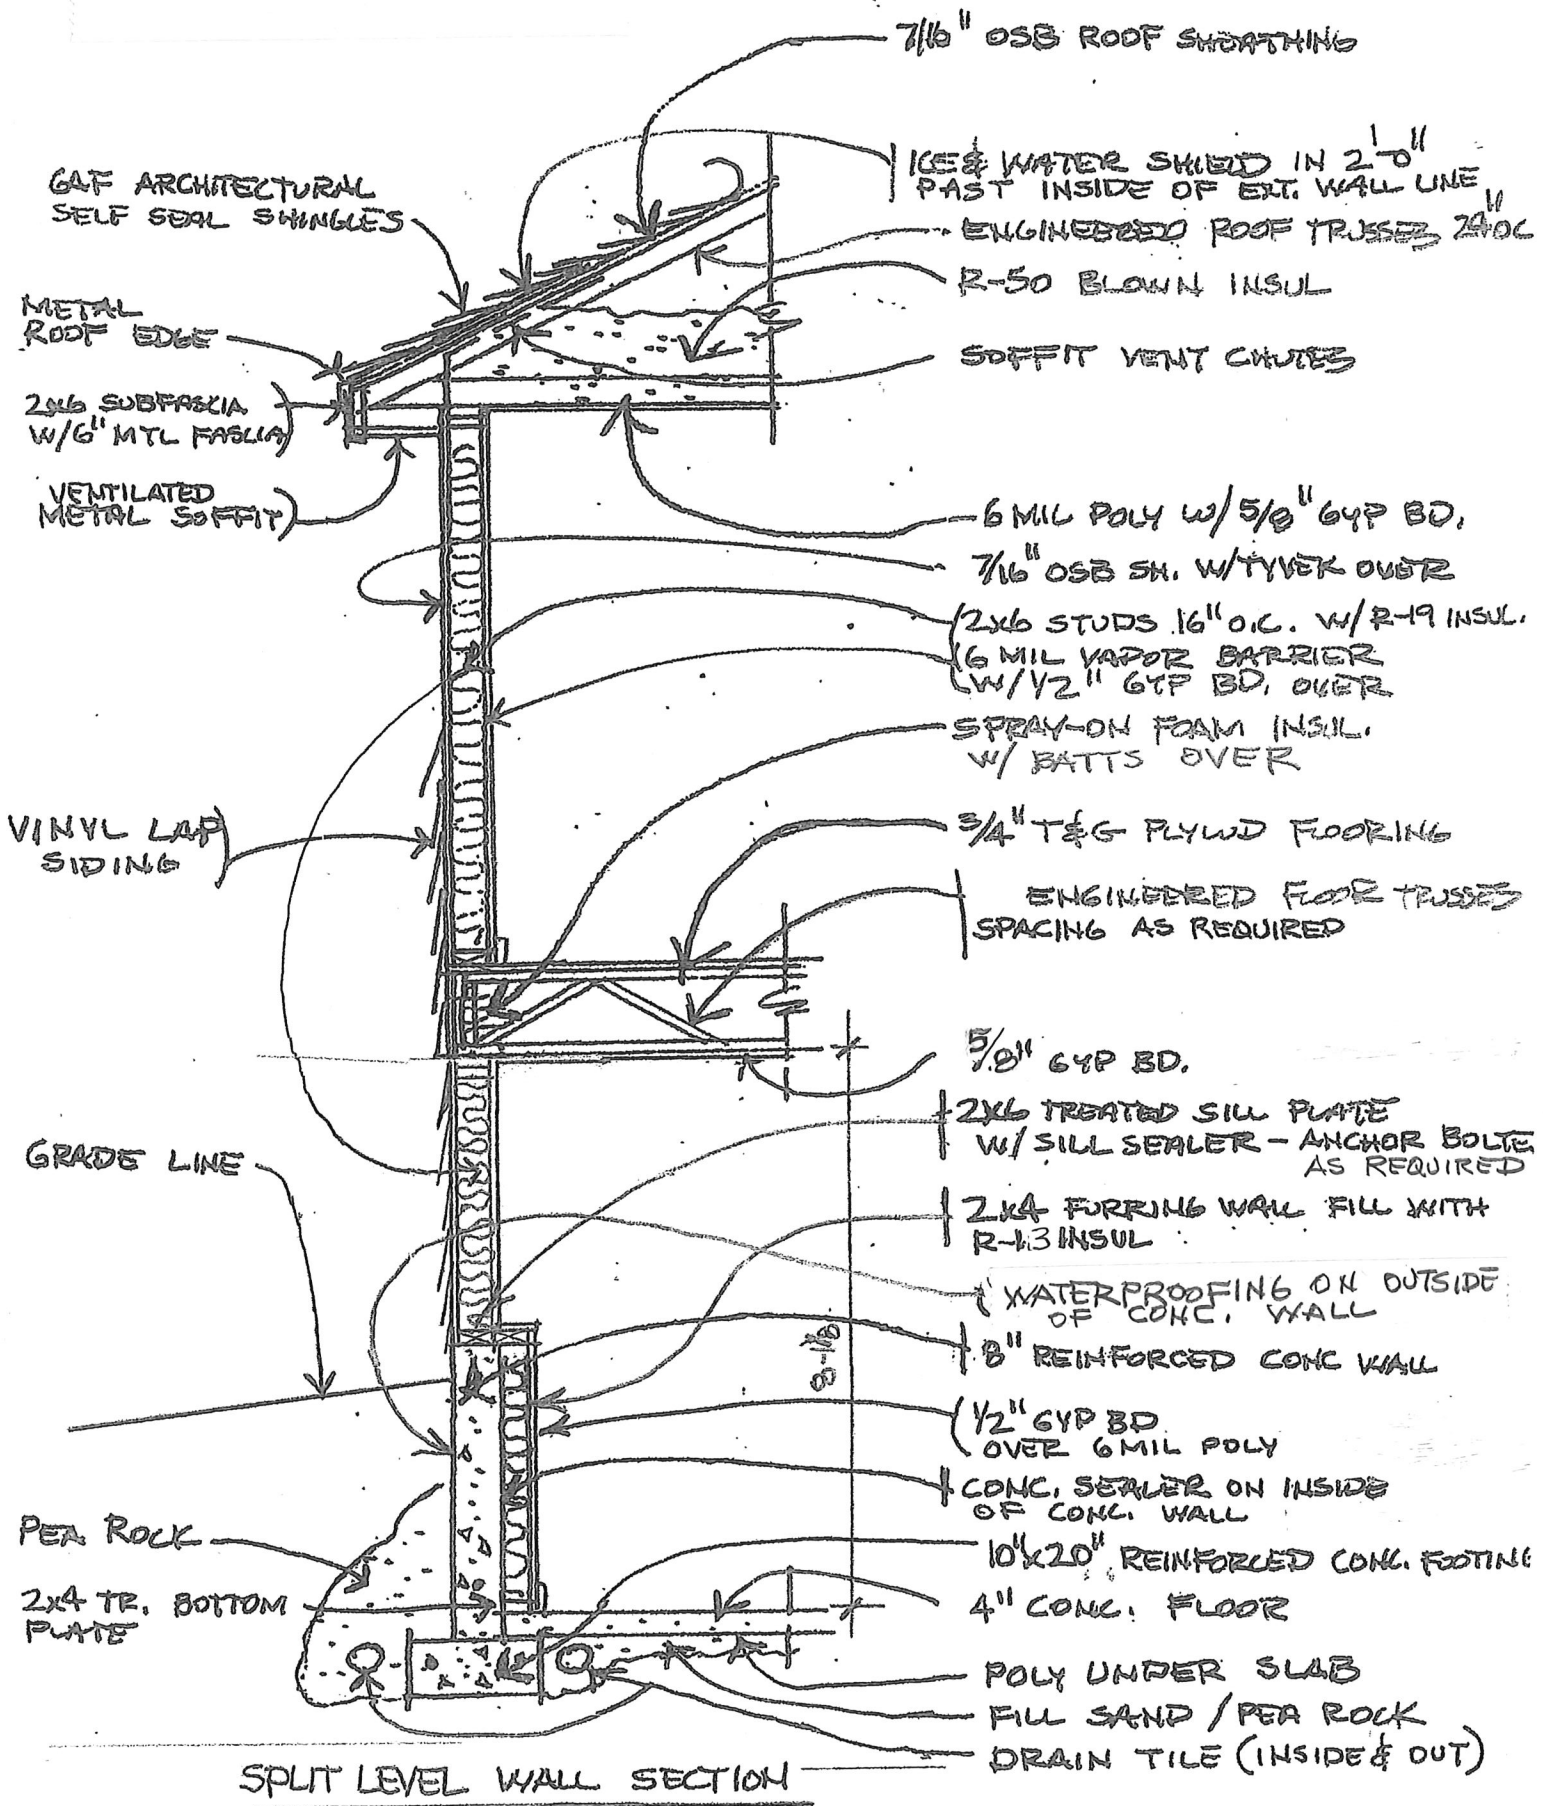 7/16" OSB ROOF SHEATHING
ICE & WATER SHIELD IN 2'-0"
PAST INSIDE OF EXT. WALL LINE
ENGINEERED ROOF TRUSSES 24" OC
R-50 BLOWN INSUL
SOFFIT VENT CHUTES
GAF ARCHITECTURAL
SELF SEAL SHINGLES
METAL
ROOF EDGE
2x6 SUBFASCIA
W/6" MTL FASCIA
VENTILATED
METAL SOFFIT
6 MIL POLY W/ 5/8" GYP BD.
7/16" OSB SH. W/TYVEK OVER
2x6 STUDS 16" O.C. W/ R-19 INSUL.
6 MIL VAPOR BARRIER
W/ 1/2" GYP BD. OVER
SPRAY-ON FOAM INSUL.
W/ BATTS OVER
VINYL LAP
SIDING
3/4" T&G PLYWD FLOORING
ENGINEERED FLOOR TRUSSES
SPACING AS REQUIRED
5/8" GYP BD.
2x6 TREATED SILL PLATE
W/ SILL SEALER - ANCHOR BOLTS
AS REQUIRED
GRADE LINE
2x4 FURRING WALL FILL WITH
R-13 INSUL
WATERPROOFING ON OUTSIDE
OF CONC. WALL
8" REINFORCED CONC WALL
1/2" GYP BD
OVER 6 MIL POLY
CONC. SEALER ON INSIDE
OF CONC. WALL
PEA ROCK
2x4 TR. BOTTOM
PLATE
10"x20" REINFORCED CONC. FOOTING
4" CONC. FLOOR
POLY UNDER SLAB
FILL SAND / PEA ROCK
DRAIN TILE (INSIDE & OUT)
SPLIT LEVEL WALL SECTION